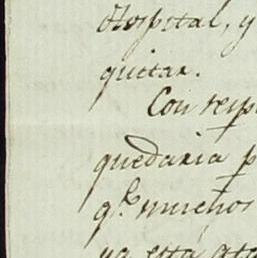 Hospital, y
quitar.
Con resp
quedaria p
q.e muchos
ya esta ata